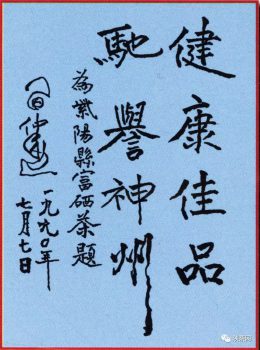 健康佳品
馳譽神州
為紫陽縣富硒茶題
一九九〇年
七月七日